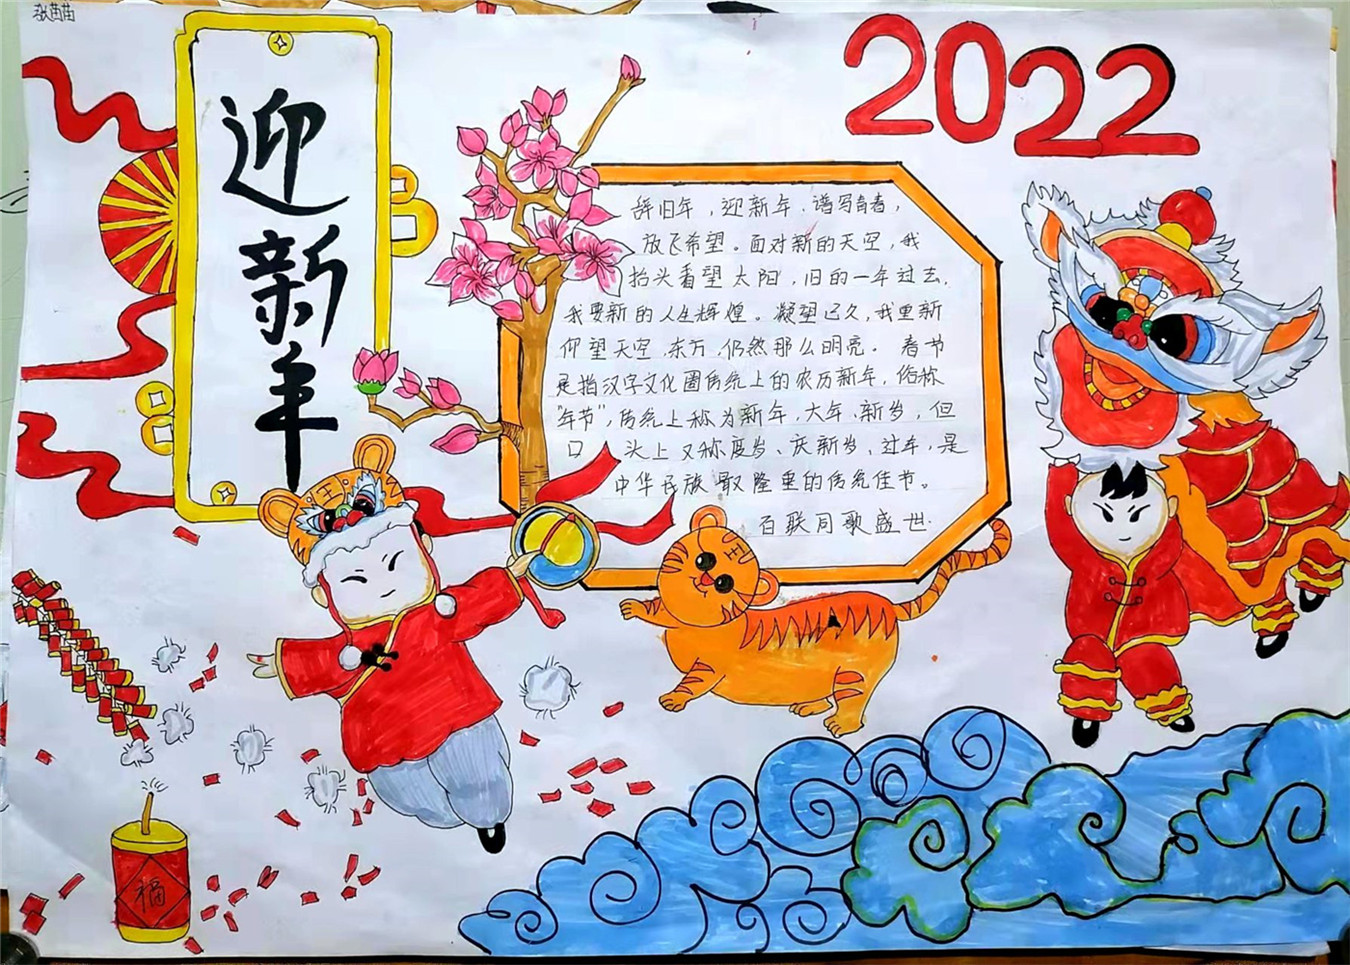 张苗苗
迎新年
2022
辞旧年，迎新年、谱写青春，
放飞希望。面对新的天空，我
抬头看望太阳，旧的一年过去，
我要新的人生辉煌。凝望已久，我重新
仰望天空，东方，仍然那么明亮。春节
是指汉字文化圈传统上的农历新年，俗称
“年节”，传统上称为新年，大年、新岁，但
口头上又称度岁、庆新岁、过年，是
中华民族最隆重的传统佳节。
百联同歌盛世.
王
王
福